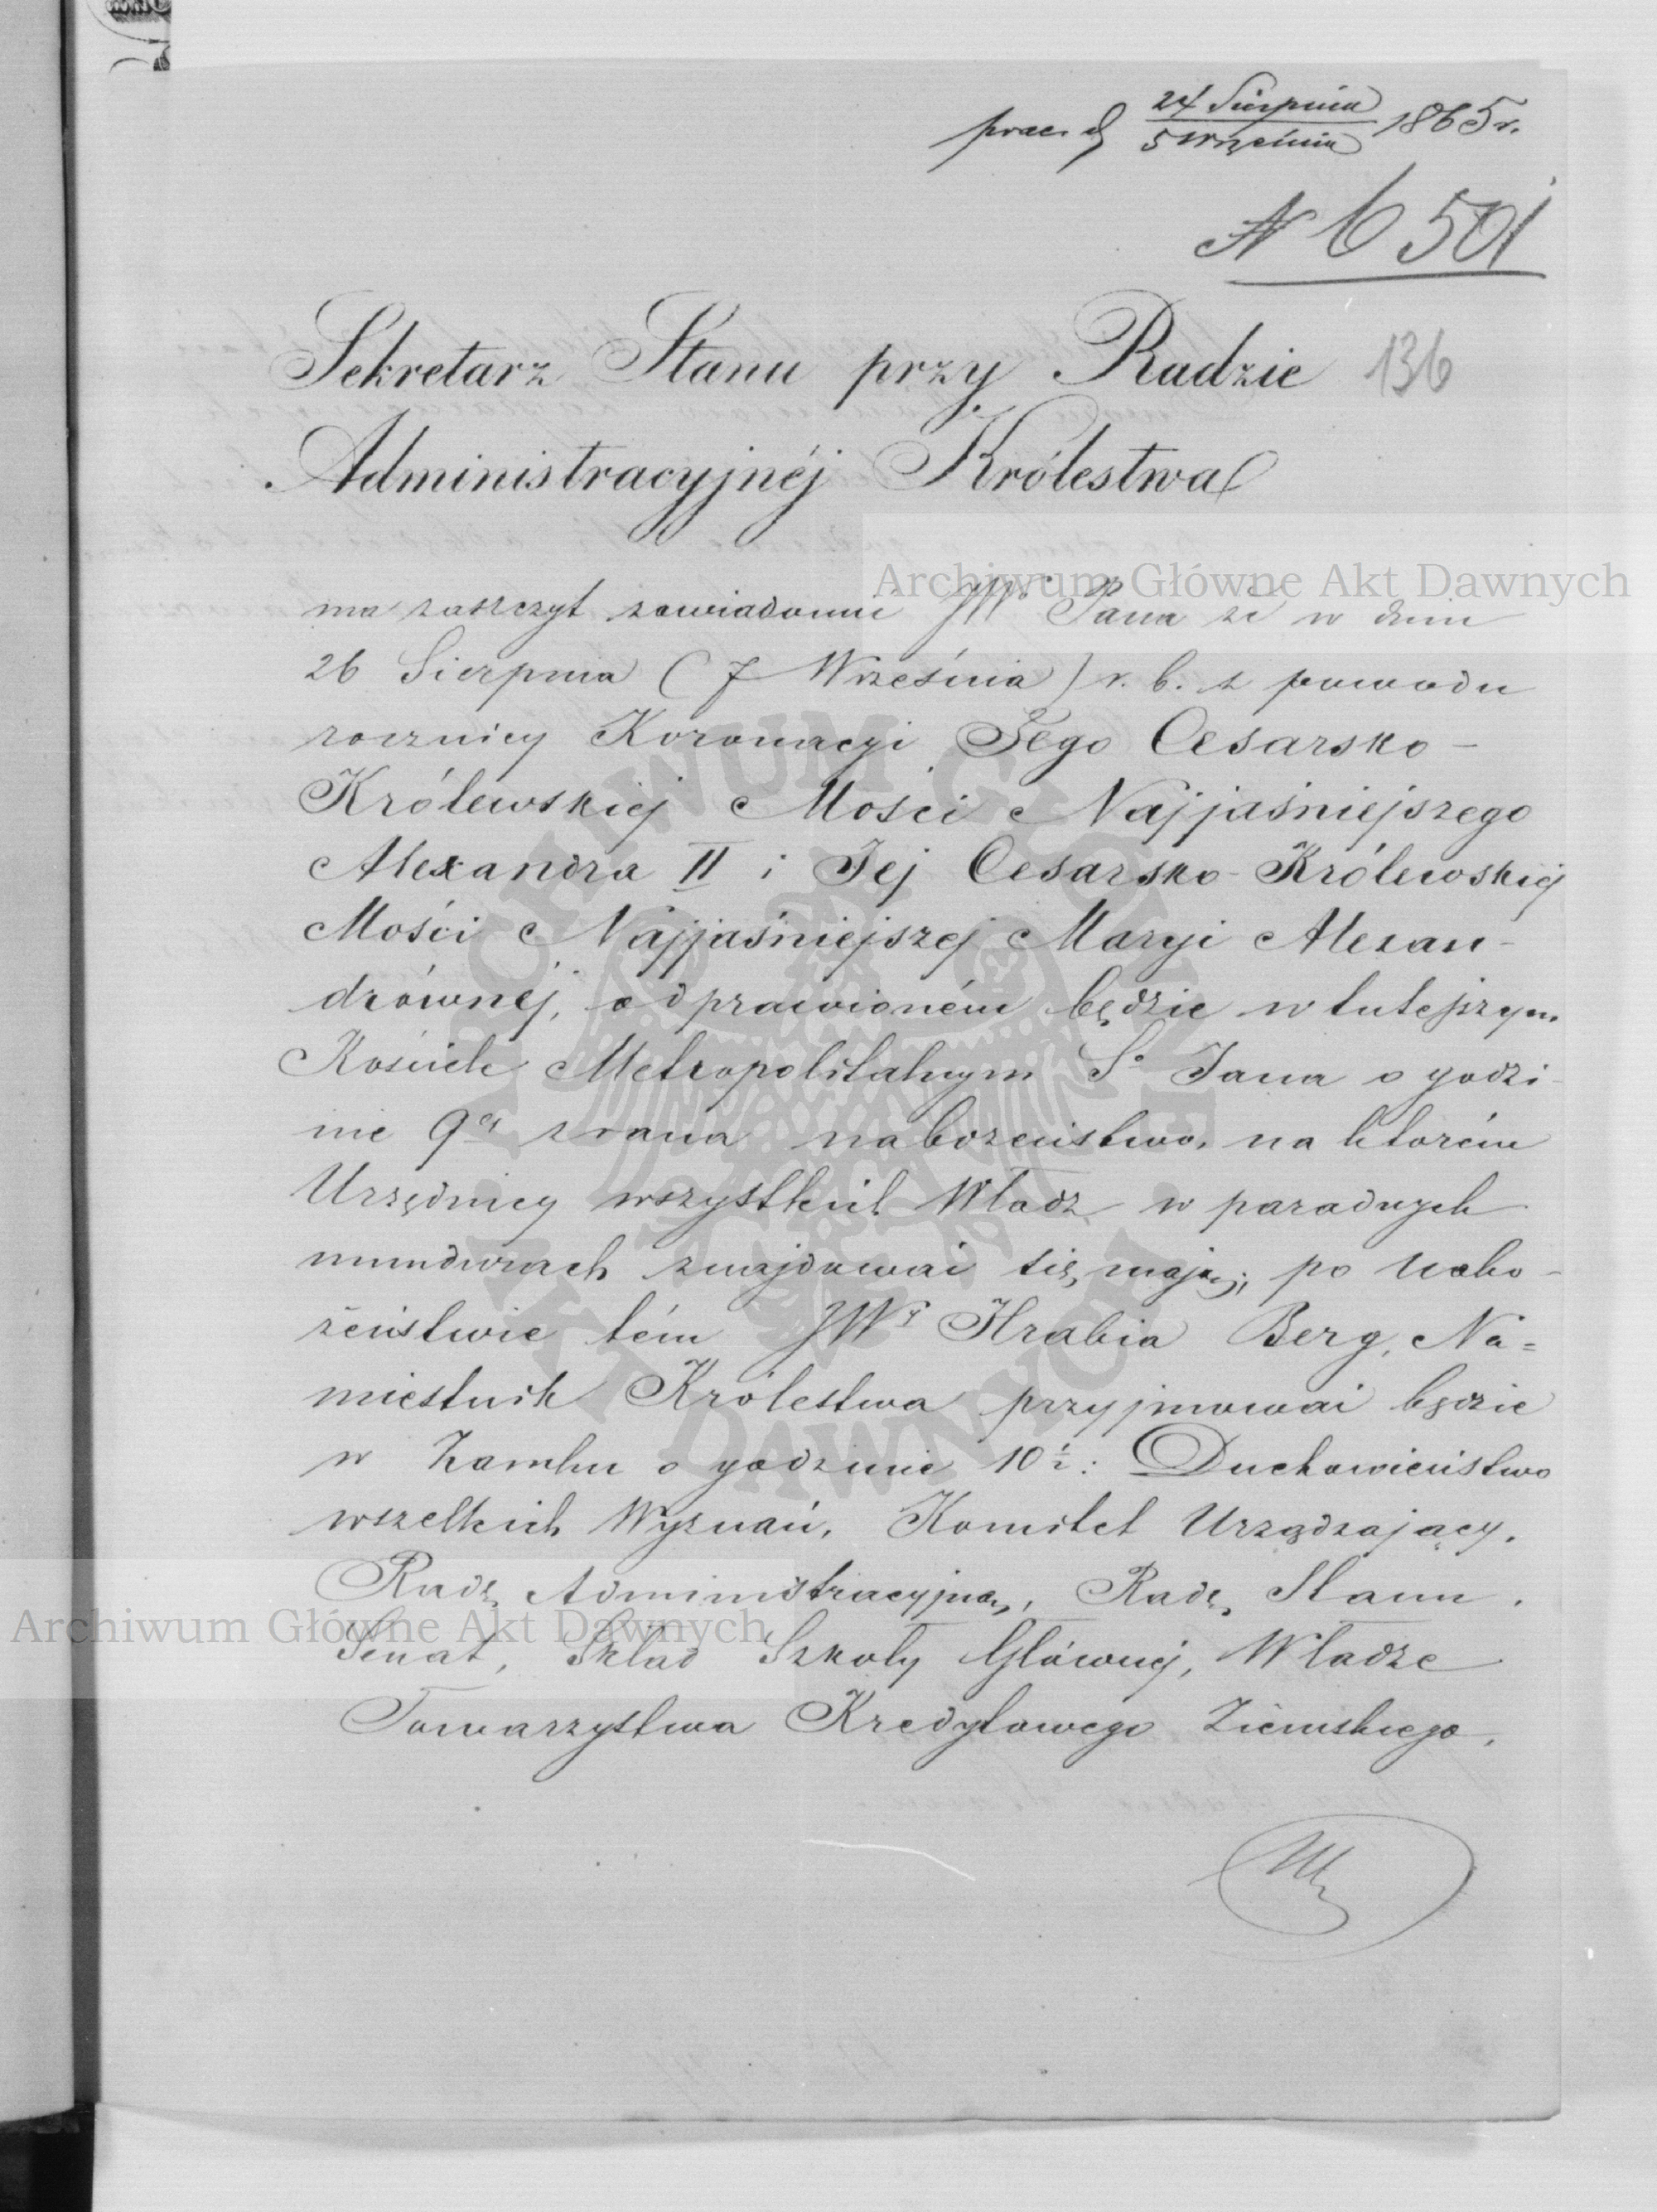 prez. d. 24 Sierpnia / 5 Września 1865 r.
N 6501
136
Sekretarz Stanu przy Radzie
Administracyjnéj Królestwa
Archiwum Główne Akt Dawnych
ma zaszczyt zawiadomić JWo Pana że w dniu
26 Sierpnia (7 Września) r. b. z powodu
rocznicy Koronacyi Jego Cesarsko-
Królewskiej Mości Najjaśniejszego
Alexandra II i Jej Cesarsko-Królewskiej
Mości Najjaśniejszej Maryi Alexan-
drównéj, odprawioném będzie w tutejszym
Kościele Metropolitalnym So Jana o godzi-
nie 9ej z rana nabożeństwo, na którém
Urzędnicy wszystkich Władz w paradnych
mundurach znajdować się mają; po nabo-
żeństwie tém JWy Hrabia Berg, Na=
miestnik Królestwa przyjmować będzie
w Zamku o godzinie 10½: Duchowieństwo
wszelkich Wyznań, Komitet Urządzający,
Radę Administracyjną, Radę Stanu,
Archiwum Główne Akt Dawnych
Senat, Skład Szkoły Głównéj, Władze
Towarzystwa Kredytowego Ziemskiego,
ARCHIWUM GŁÓWNE AKT DAWNYCH